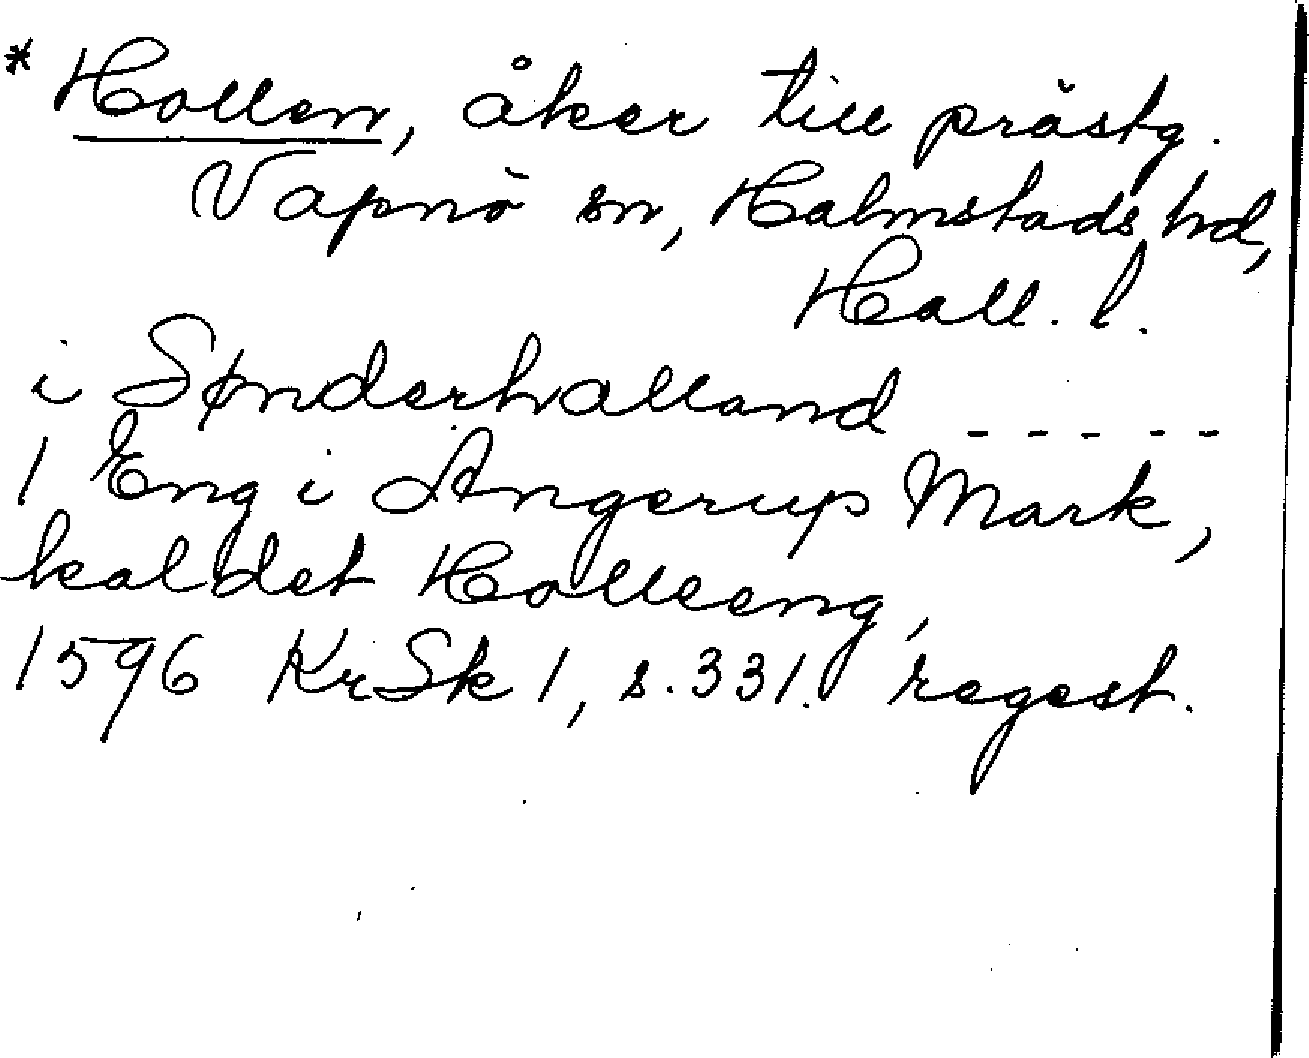 * Hollen, åker till prästg.
Vapnö sn, Halmstads hd,
Hall. l.
i Sønderhalland - - - - -
1 Eng i Angerup Mark,
kaldet Holleeng,
1596 KrSk 1, s. 331. regest.